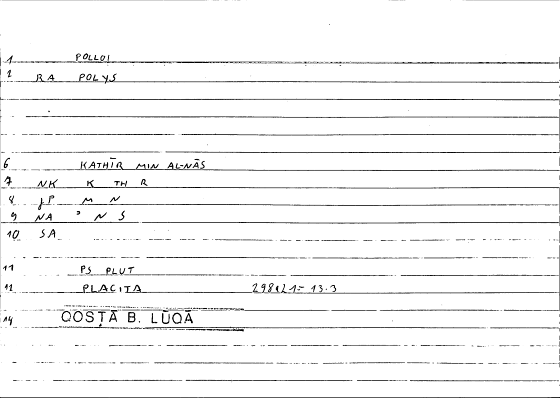 1 POLLOI
2 RA POLYS
6 KATHĪR MIN AL-NĀS
7 NK K TH R
8 JP M N
9 NA ʾ N S
10 SA
11 PS PLUT
12 PLACITA 298,21= 13.3
14 QOSṬĀ B. LŪQĀ